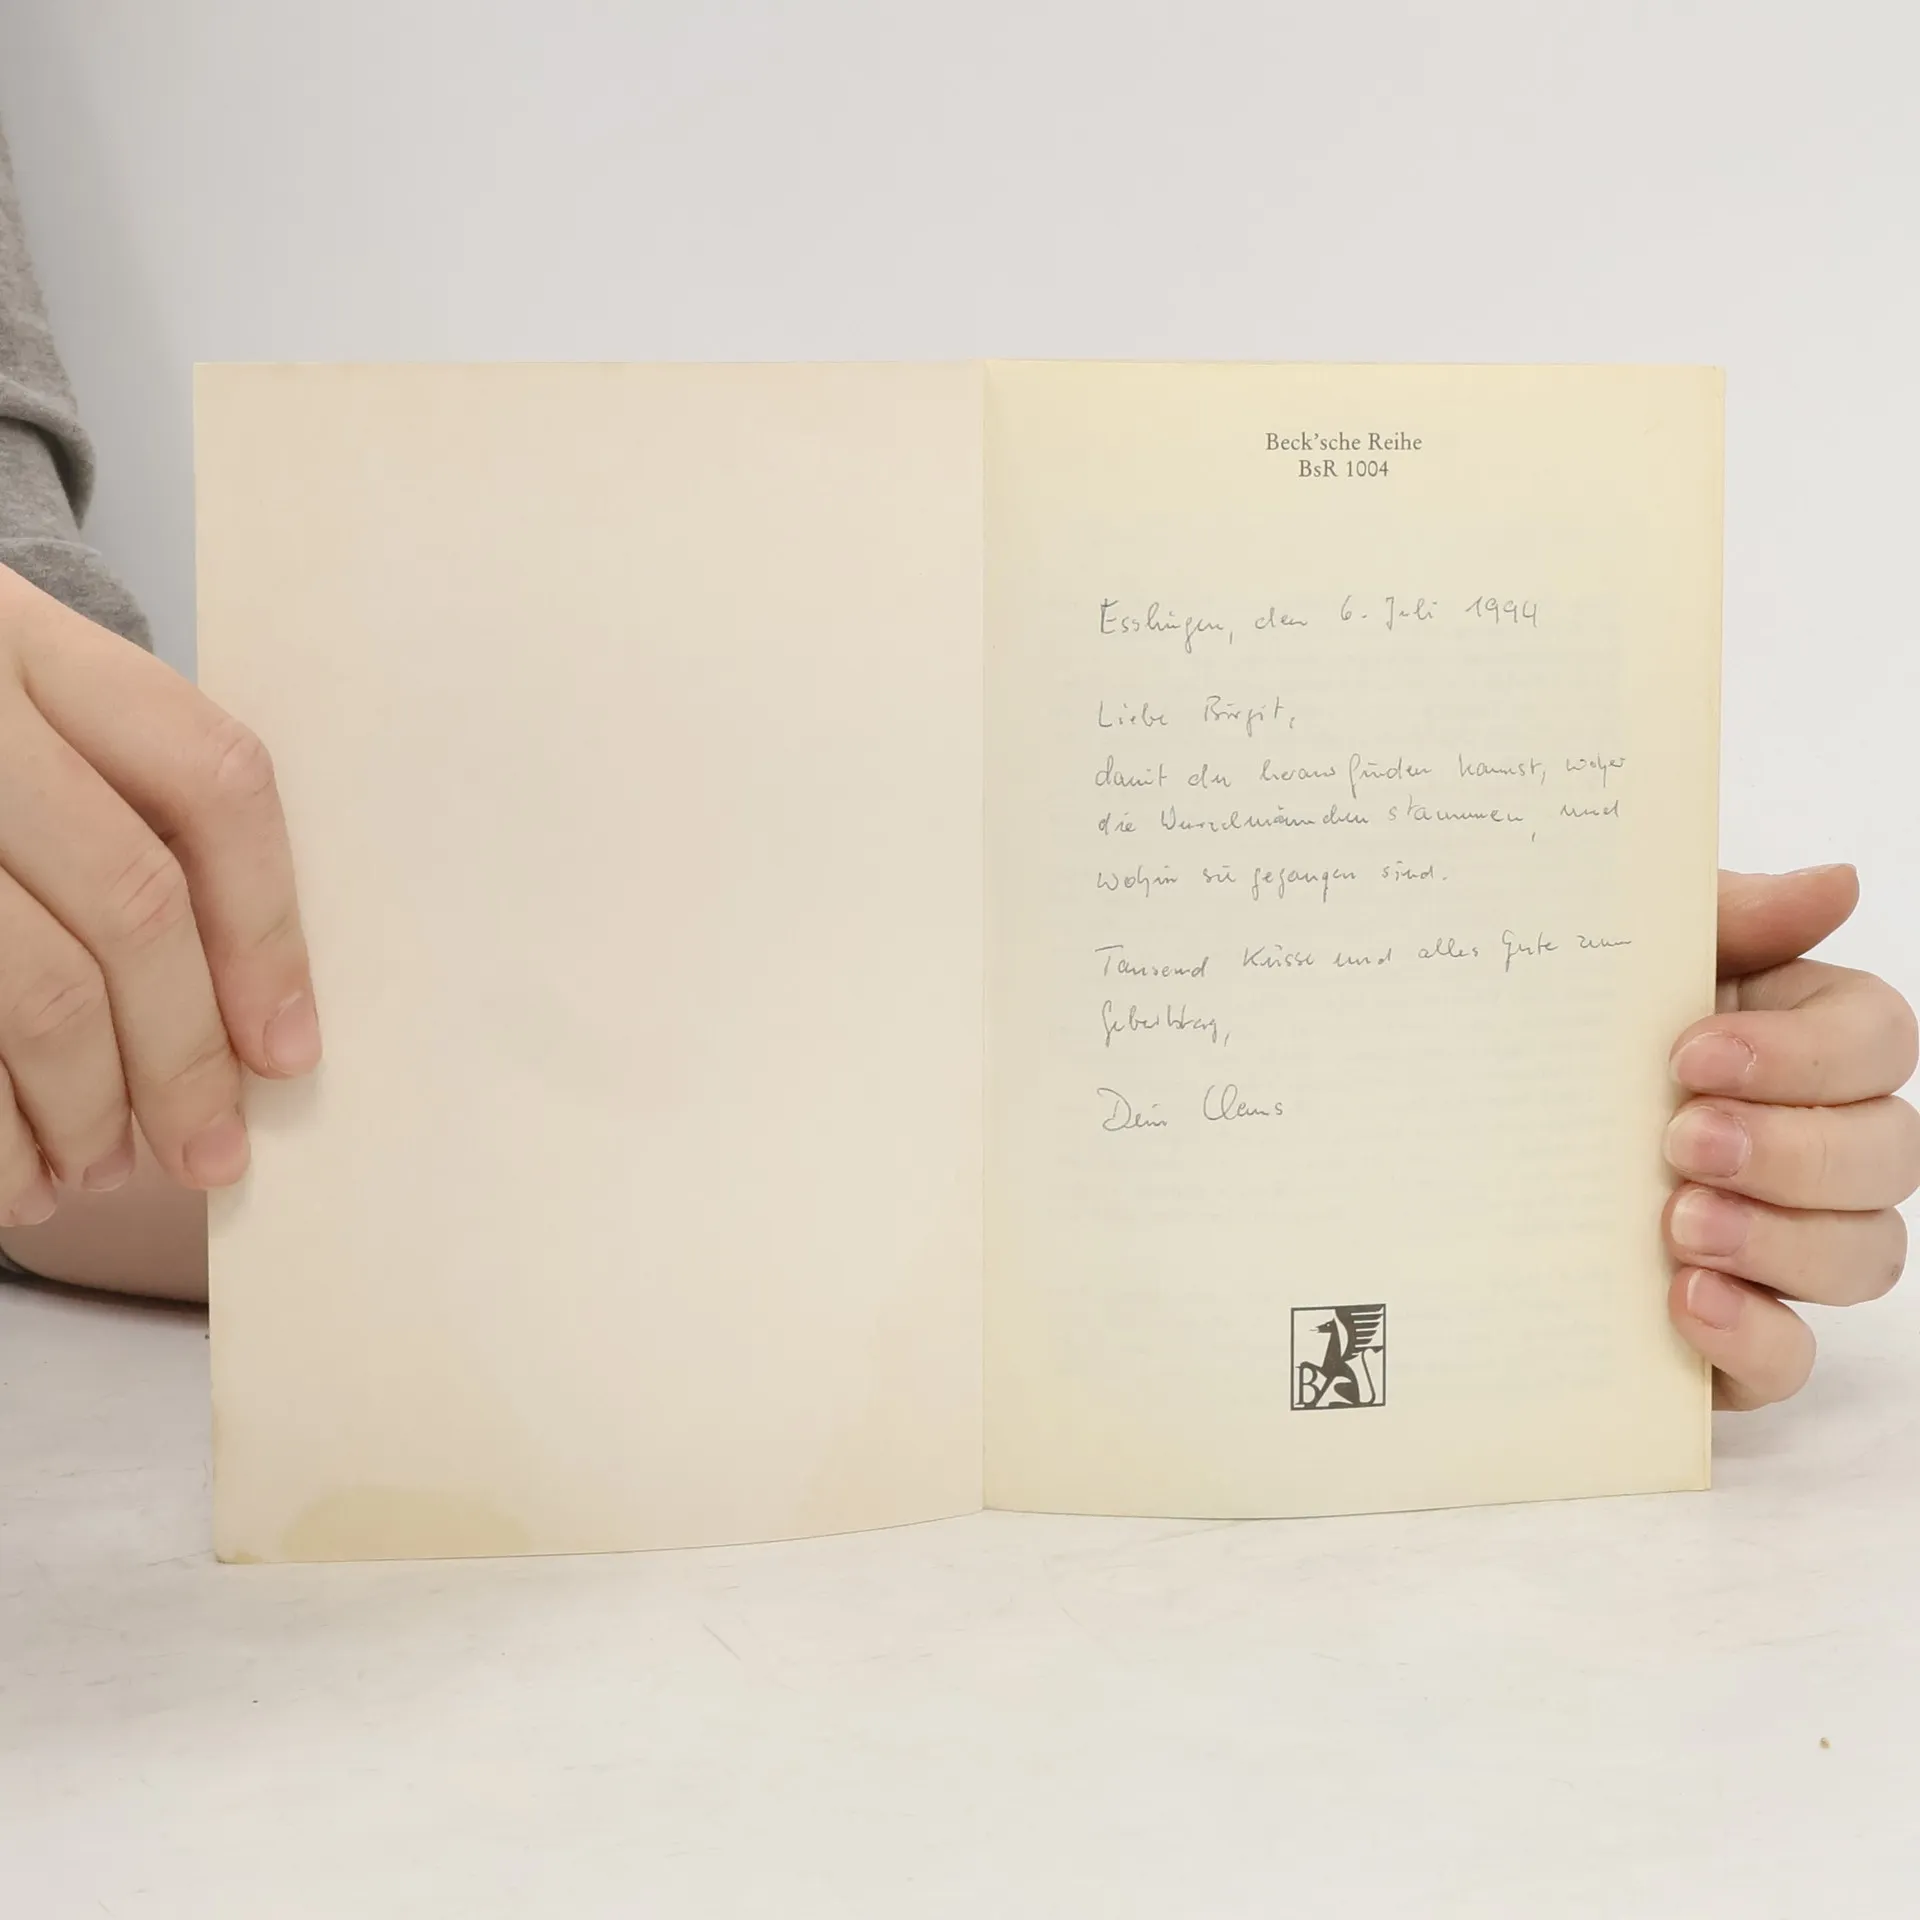 Beck'sche Reihe
BsR 1004
Esslingen, den 6. Juli 1994
Liebe Birgit,
damit du herausfinden kannst, woher
die Wurzelmännchen stammen, und
wohin sie gegangen sind.
Tausend Küsse und alles Gute zum
Geburtstag,
Dein Claus
BsR